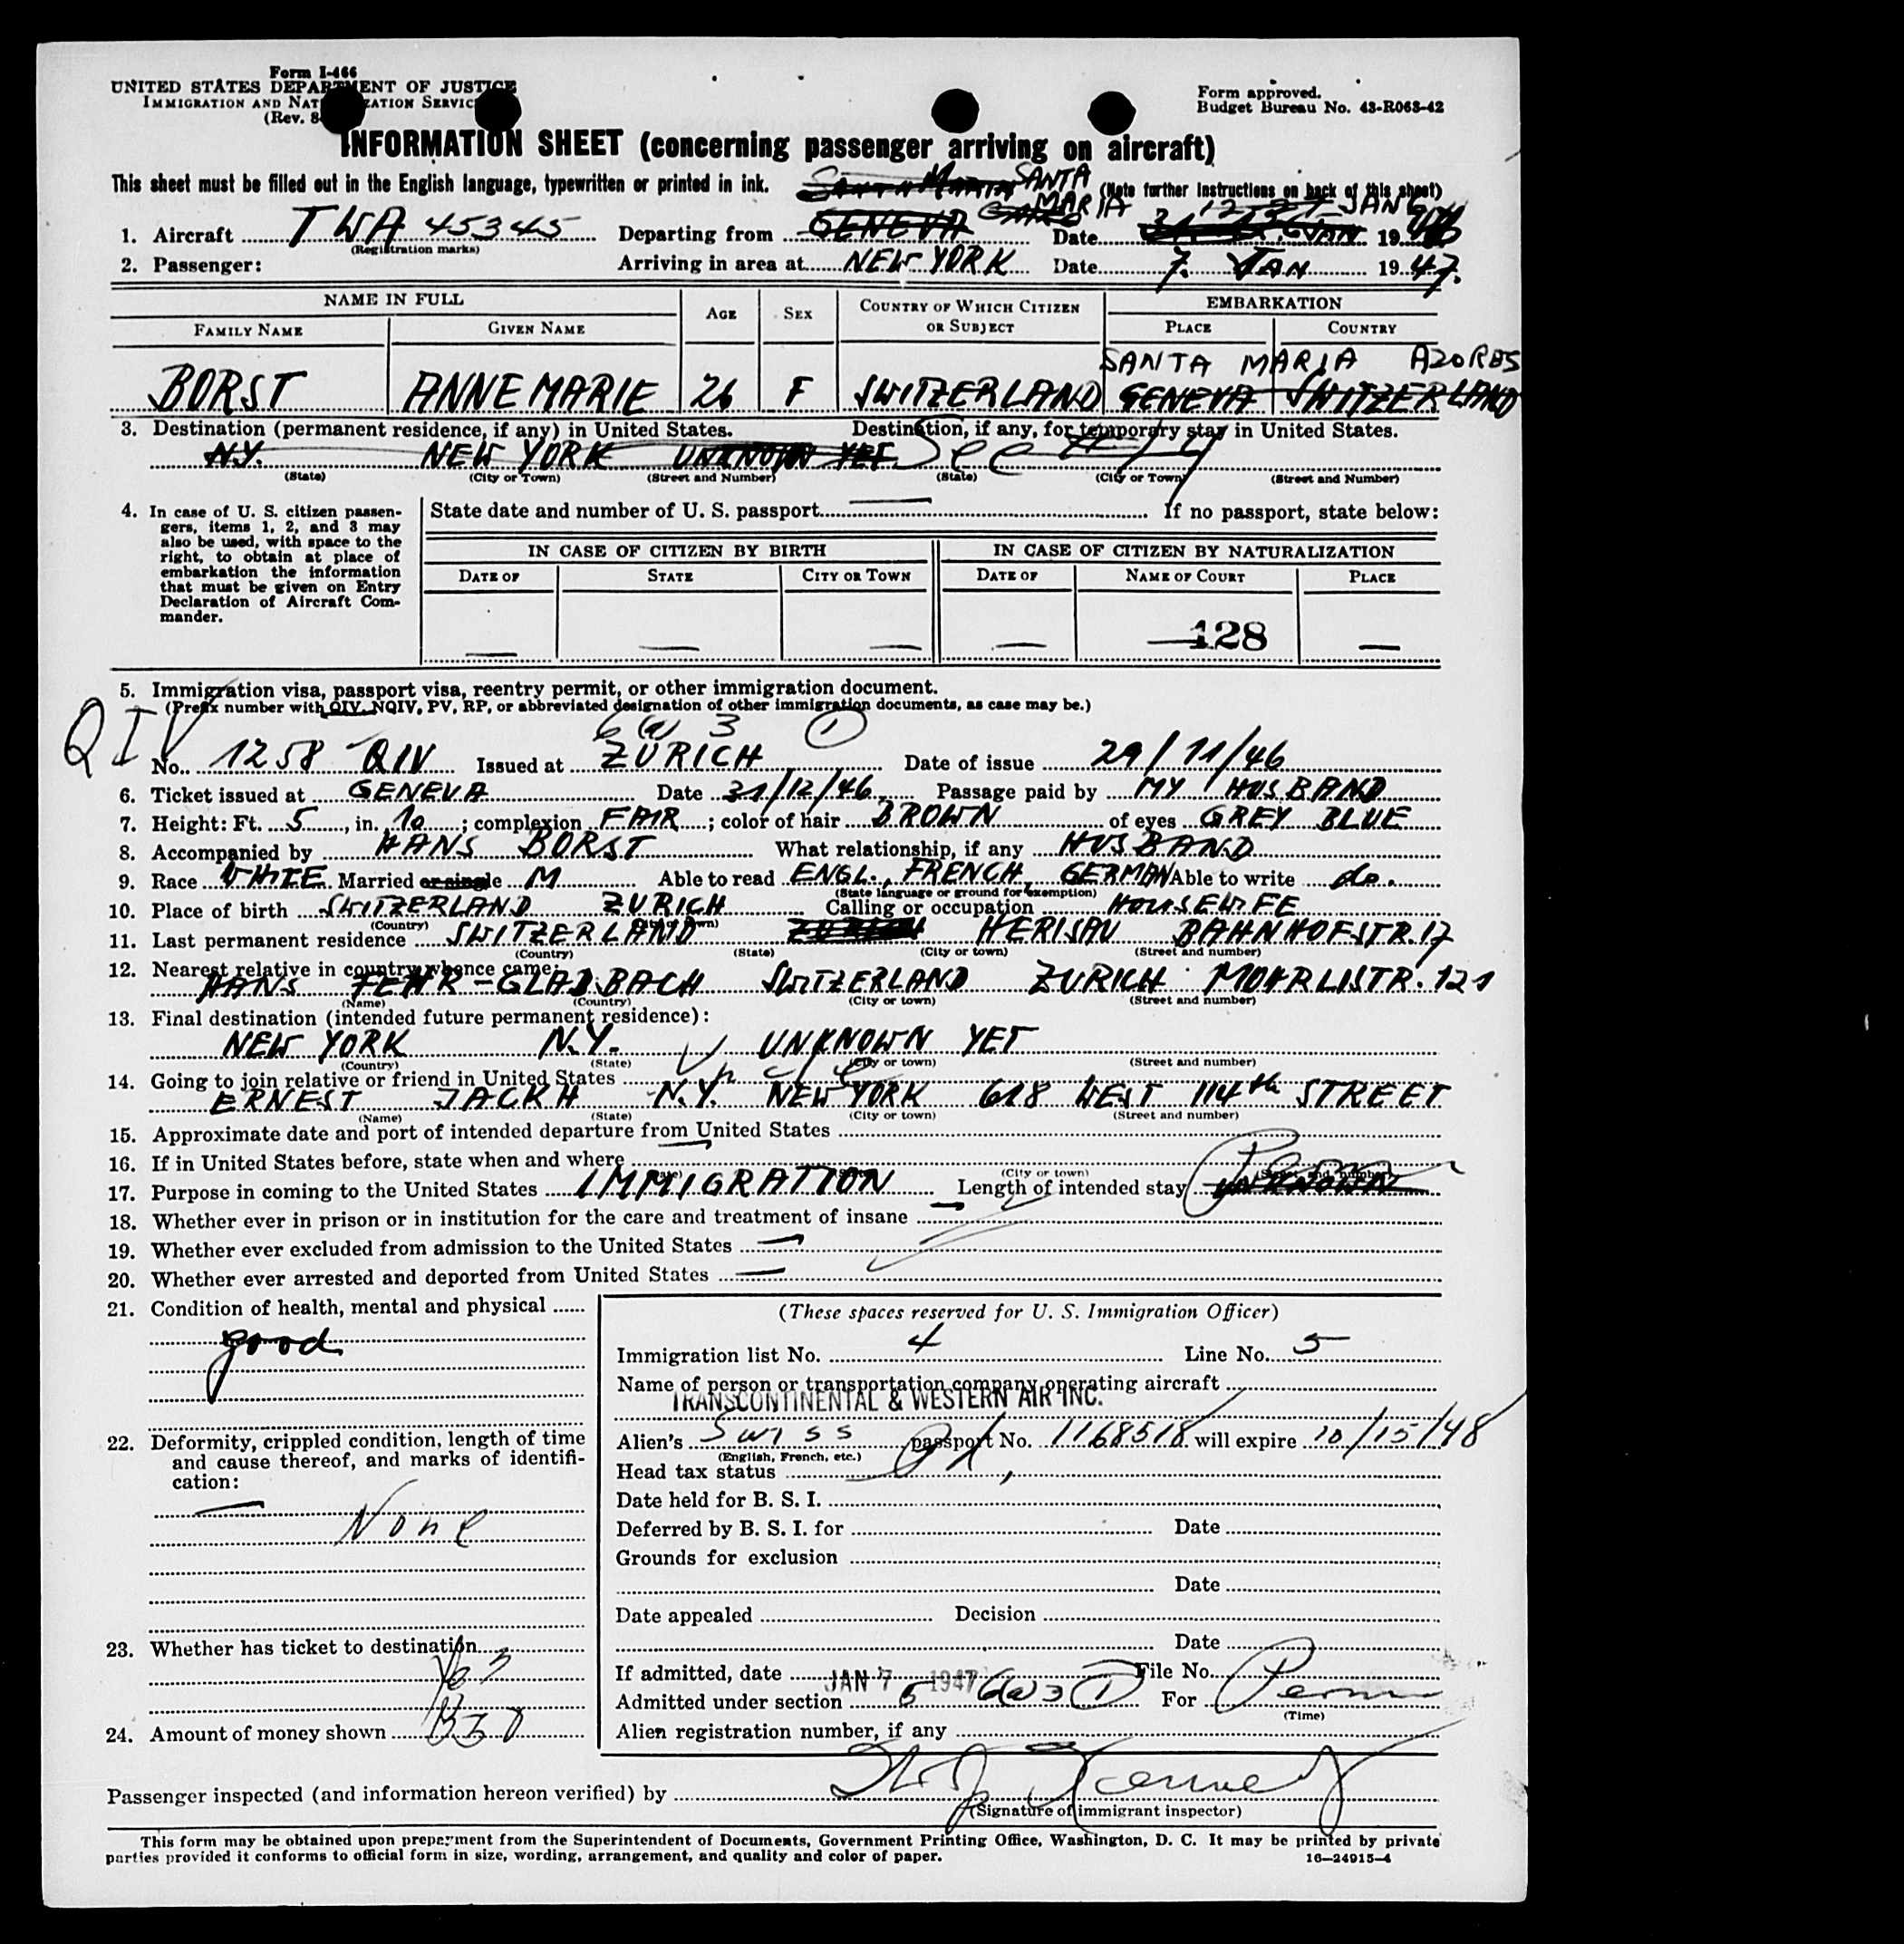 Form I-466
UNITED STATES DEPARTMENT OF JUSTICE
IMMIGRATION AND NATURALIZATION SERVICE
(Rev. 8-
Form approved.
Budget Bureau No. 43-R063-42
INFORMATION SHEET (concerning passenger arriving on aircraft)
This sheet must be filled out in the English language, typewritten or printed in ink. SANTA MARIA SANTA MARIA (Note further instructions on back of this sheet)
1. Aircraft TWA 45345 Departing from GENEVA Date JAN 19
(Registration marks)
2. Passenger: Arriving in area at NEW YORK Date 7. JAN 19 47.
NAME IN FULL AGE SEX COUNTRY OF WHICH CITIZEN OR SUBJECT EMBARKATION
FAMILY NAME GIVEN NAME PLACE COUNTRY
SANTA MARIA AZORES
BORST ANNEMARIE 26 F SWITZERLAND GENEVA SWITZERLAND
3. Destination (permanent residence, if any) in United States. Destination, if any, for temporary stay in United States.
N.Y. NEW YORK UNKNOWN YET See
(State) (City or Town) (Street and Number) (State) (City or Town) (Street and Number)
4. In case of U. S. citizen passengers, items 1, 2, and 3 may also be used, with space to the right, to obtain at place of embarkation the information that must be given on Entry Declaration of Aircraft Commander.
State date and number of U. S. passport — If no passport, state below:
IN CASE OF CITIZEN BY BIRTH IN CASE OF CITIZEN BY NATURALIZATION
DATE OF STATE CITY OR TOWN DATE OF NAME OF COURT PLACE
— — — — —128 —
5. Immigration visa, passport visa, reentry permit, or other immigration document.
(Prefix number with QIV, NQIV, PV, RP, or abbreviated designation of other immigration documents, as case may be.)
QIV 6 (a) 3 (1)
No. 1258 QIV Issued at ZURICH Date of issue 29/11/46
6. Ticket issued at GENEVA Date 31/12/46 Passage paid by MY HUSBAND
7. Height: Ft. 5, in. 10; complexion FAIR; color of hair BROWN of eyes GREY BLUE
8. Accompanied by HANS BORST What relationship, if any HUSBAND
9. Race WHITE Married or single M Able to read ENGL., FRENCH, GERMAN Able to write do.
(State language or ground for exemption)
10. Place of birth SWITZERLAND ZURICH Calling or occupation HOUSEWIFE
(Country)
11. Last permanent residence SWITZERLAND ZURICH HERISAU BAHNHOFSTR. 17
(Country) (State) (City or town) (Street and number)
12. Nearest relative in country whence came:
HANS FEHR-GLADBACH SWITZERLAND ZURICH MOHRLISTR. 121
(Name) (Country) (City or town) (Street and number)
13. Final destination (intended future permanent residence):
NEW YORK N.Y. UNKNOWN YET
(Country) (State) (City or town) (Street and number)
14. Going to join relative or friend in United States Uncle
ERNEST JACKH N.Y. NEW YORK 618 WEST 114th STREET
(Name) (State) (City or town) (Street and number)
15. Approximate date and port of intended departure from United States
16. If in United States before, state when and where —
(City or town) (Street and number)
17. Purpose in coming to the United States IMMIGRATION Length of intended stay UNKNOWN Perm
18. Whether ever in prison or in institution for the care and treatment of insane —
19. Whether ever excluded from admission to the United States —
20. Whether ever arrested and deported from United States —
21. Condition of health, mental and physical
good
22. Deformity, crippled condition, length of time and cause thereof, and marks of identification:
—
None
23. Whether has ticket to destination
Yes
24. Amount of money shown
(These spaces reserved for U. S. Immigration Officer)
Immigration list No. 4 Line No. 5
Name of person or transportation company operating aircraft
TRANSCONTINENTAL & WESTERN AIR INC.
Alien's Swiss passport No. 1168518 will expire 10/15/48
(English, French, etc.)
Head tax status Pd.
Date held for B. S. I.
Deferred by B. S. I. for Date
Grounds for exclusion
Date
Date appealed Decision
Date
If admitted, date JAN 7 1947 File No.
Admitted under section 6(a)3 (1) For Perm
(Time)
Alien registration number, if any
Passenger inspected (and information hereon verified) by Kennedy
(Signature of immigrant inspector)
This form may be obtained upon prepayment from the Superintendent of Documents, Government Printing Office, Washington, D. C. It may be printed by private
parties provided it conforms to official form in size, wording, arrangement, and quality and color of paper. 16—24915-4